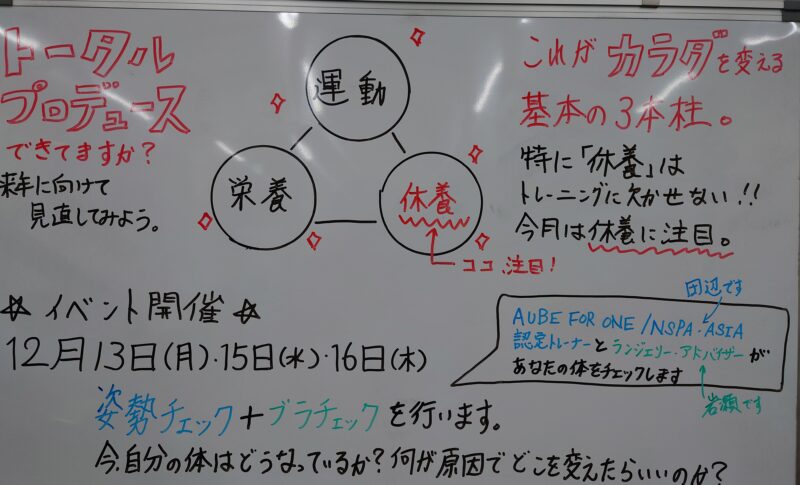 トータル
プロデュース
できてますか?
来年に向けて
見直してみよう。
運動
栄養
休養
ココ、注目!
これが カラダを変える
基本の3本柱。
特に「休養」は
トレーニングに欠かせない!!
今月は休養に注目。
☆イベント開催☆
12月13日(月)・15日(水)・16日(木)
田辺です
AUBE FOR ONE/NSPA・ASIA
認定トレーナーとランジェリー・アドバイザーが
あなたの体をチェックします
岩瀬です
姿勢チェック+ブラチェックを行います。
今、自分の体はどうなっているか?何が原因でどこを変えたらいいのか?